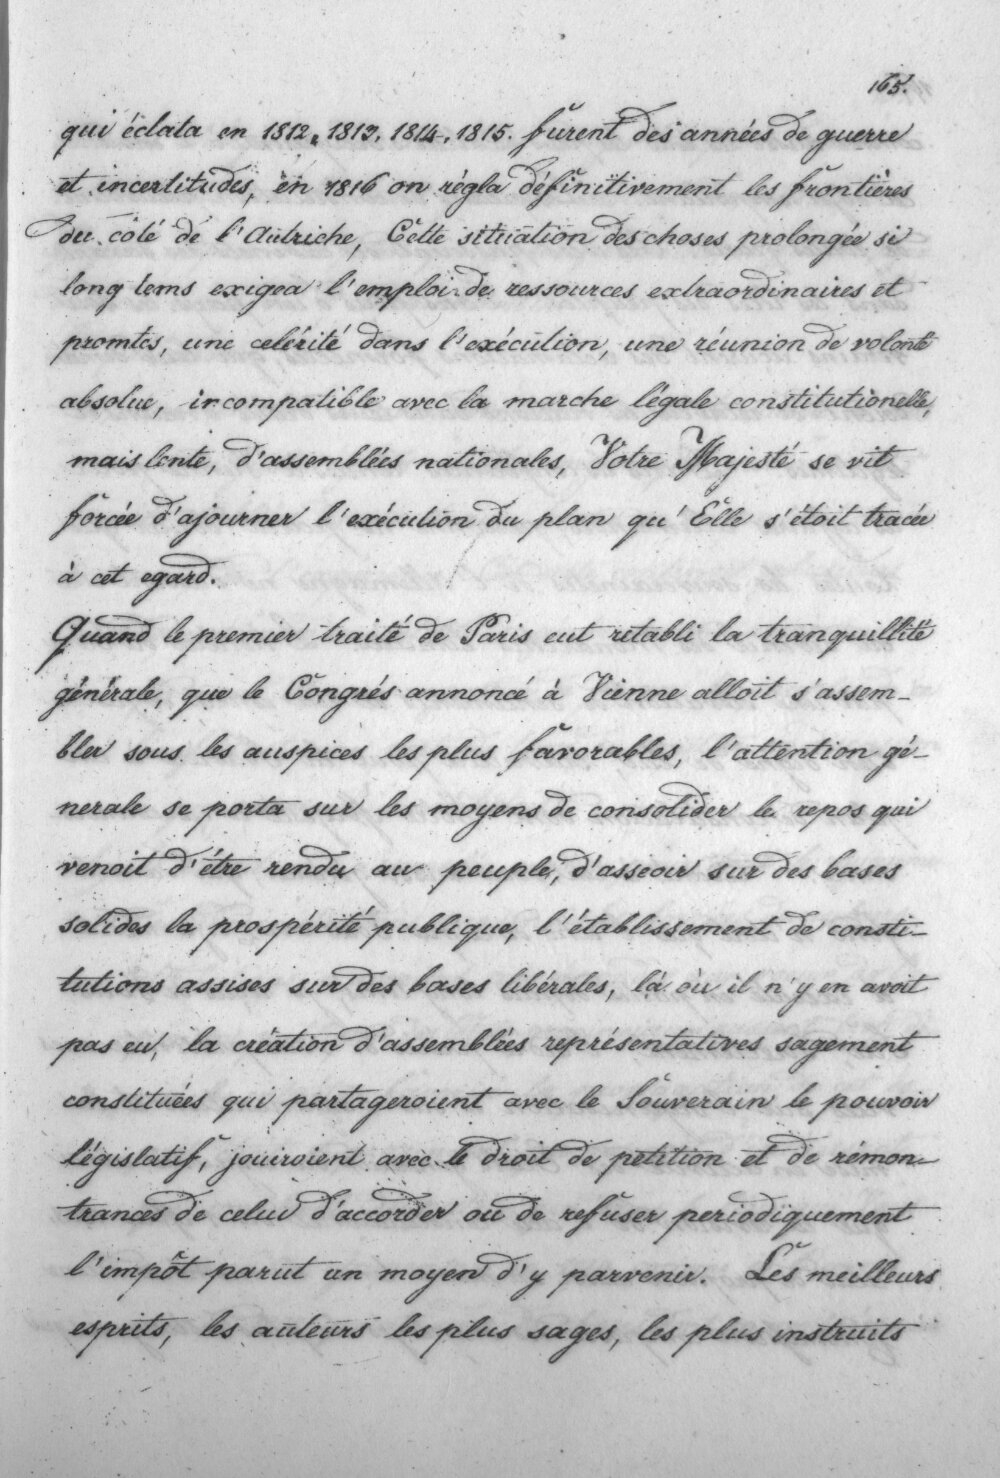 165.
qui éclata en 1812, 1813, 1814, 1815. furent des années de guerre
et incertitudes, en 1816 on règla définitivement les frontières
du côté de l'Autriche, Cette situation des choses prolongée si
long tems exigea l'emploi de ressources extraordinaires et
promtes, une celérité dans l'exécution, une réunion de volonté
absolue, incompatible avec la marche légale constitutionelle,
mais lente, d'assemblées nationales, Votre Majesté se vit
forcée d'ajourner l'exécution du plan qu'Elle s'étoit tracée
à cet egard.
Quand le premier traité de Paris eut rétabli la tranquillité
générale, que le Congrés annoncé à Vienne alloit s'assem-
bler sous les auspices les plus favorables, l'attention gé-
nerale se porta sur les moyens de consolider le repos qui
venoit d'étre rendu au peuple, d'asseoir sur des bases
solides la prospérité publique, l'établissement de consti-
tutions assises sur des bases libérales, là où il n'y en avoit
pas eu, la création d'assemblées représentatives sagement
constituées qui partageroient avec le Souverain le pouvoir
législatif, jouiroient avec le droit de petition et de rémon-
trances de celui d'accorder ou de refuser periodiquement
l'impôt parut un moyen d'y parvenir. Les meilleurs
esprits, les auteurs les plus sages, les plus instruits